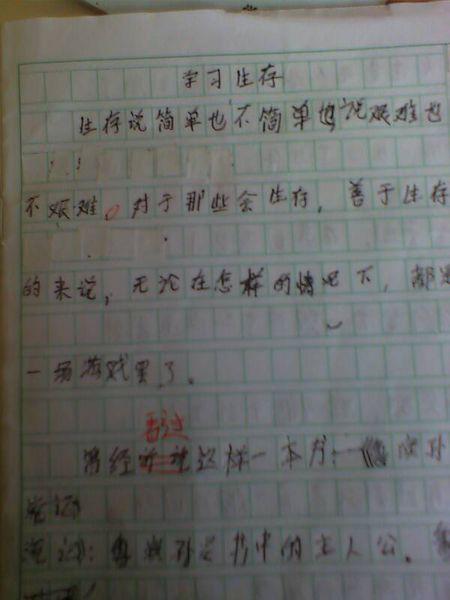 学习生存
生存说简单也不简单也说艰难也
不艰难。对于那些会生存，善于生存
的来说，无论在怎样的情况下，都是
一场游戏罢了。
看过
曾经这样一本书：
书中的主人公。